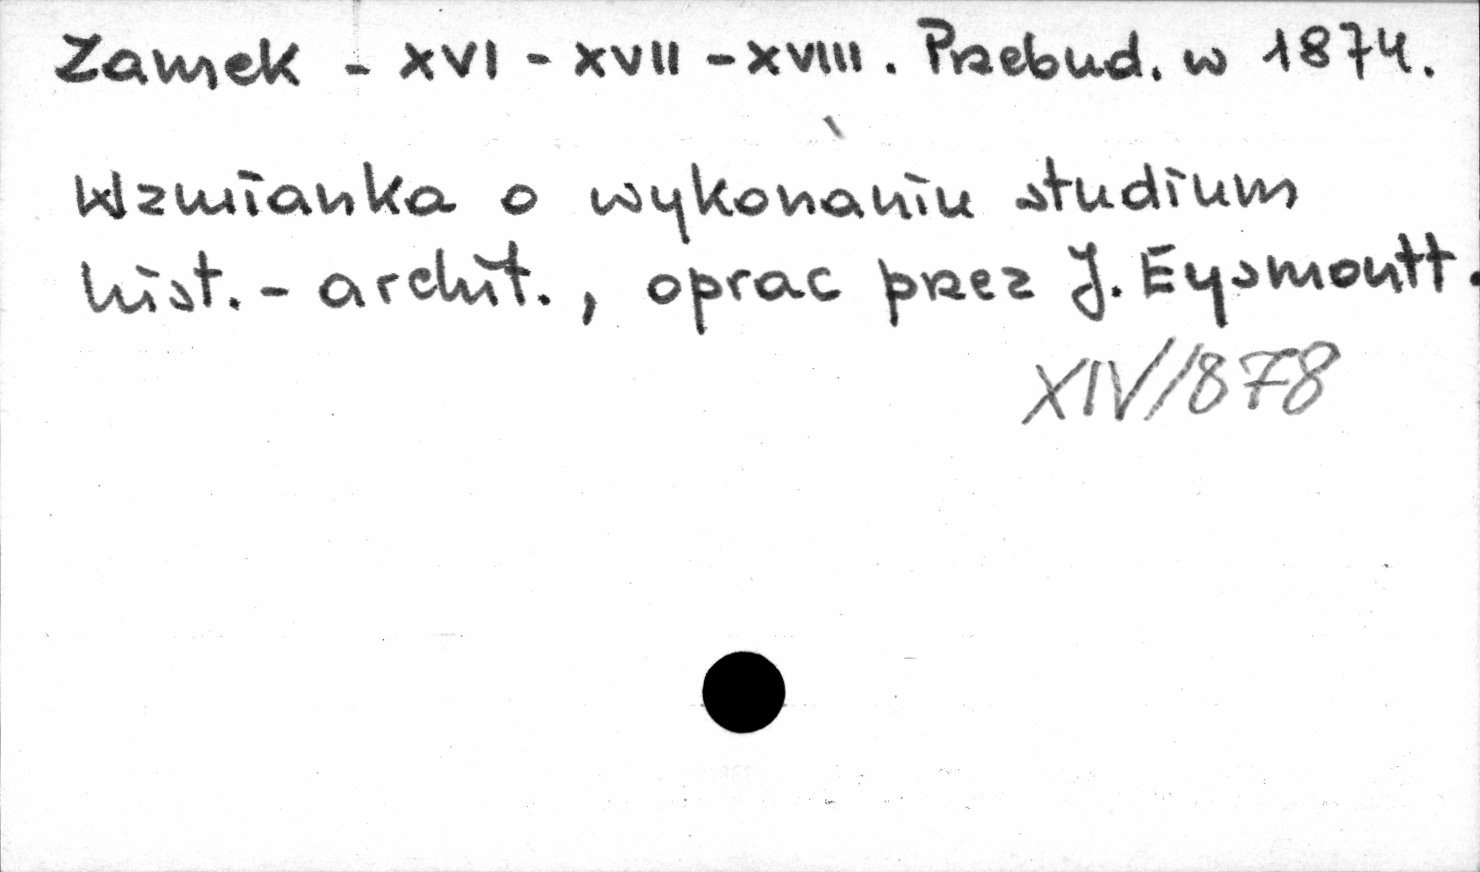 Zamek - XVI - XVII - XVIII. Przebud. w 1874.
Wzmianka o wykonaniu studium
hist. - archit., oprac przez J. Eysmontt.
XIV/878